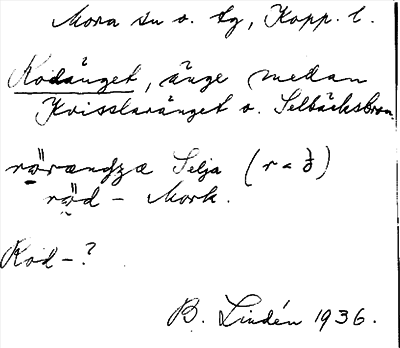 Mora sn o. tg, Kopp. l.
Rodänget, änge medan
Kvisslaränget o. Selbäcksbron
rörændzæ Selja (r < ð)
röd - Mork.
Rod-?
B. Lindén 1936.